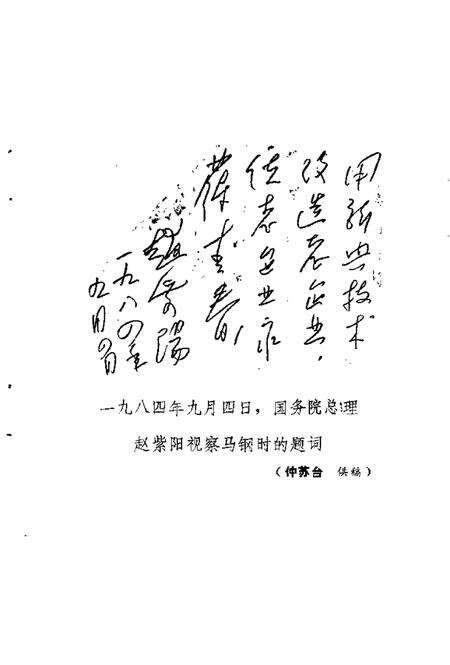 用新兴技术
改造老企业，
使老企业永
葆青春
趙紫陽
一九八四年
九月四日
一九八四年九月四日，国务院总理
赵紫阳视察马钢时的题词
（仲苏台 供稿）